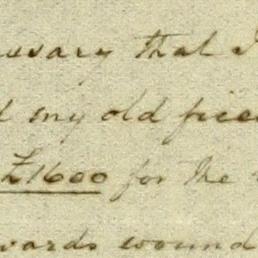 essary that I
my old piece
£1600 for the
wards wound